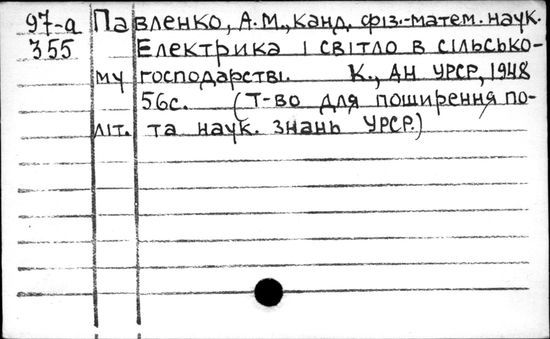 97-а Павленко, А.М., канд. фіз.-матем. наук.
355 Електрика і світло в сільсько-
му господарстві. К., АН УРСР, 1948
56с. (Т-во для поширення по-
літ. та наук. знань УРСР.)